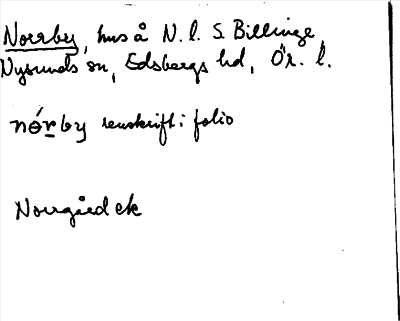 Norrby, hus å N. l. S. Billinge,
Nysunds sn, Edsbergs hd, Ör. l.
nórby renskrift i folio
Norrgård ek